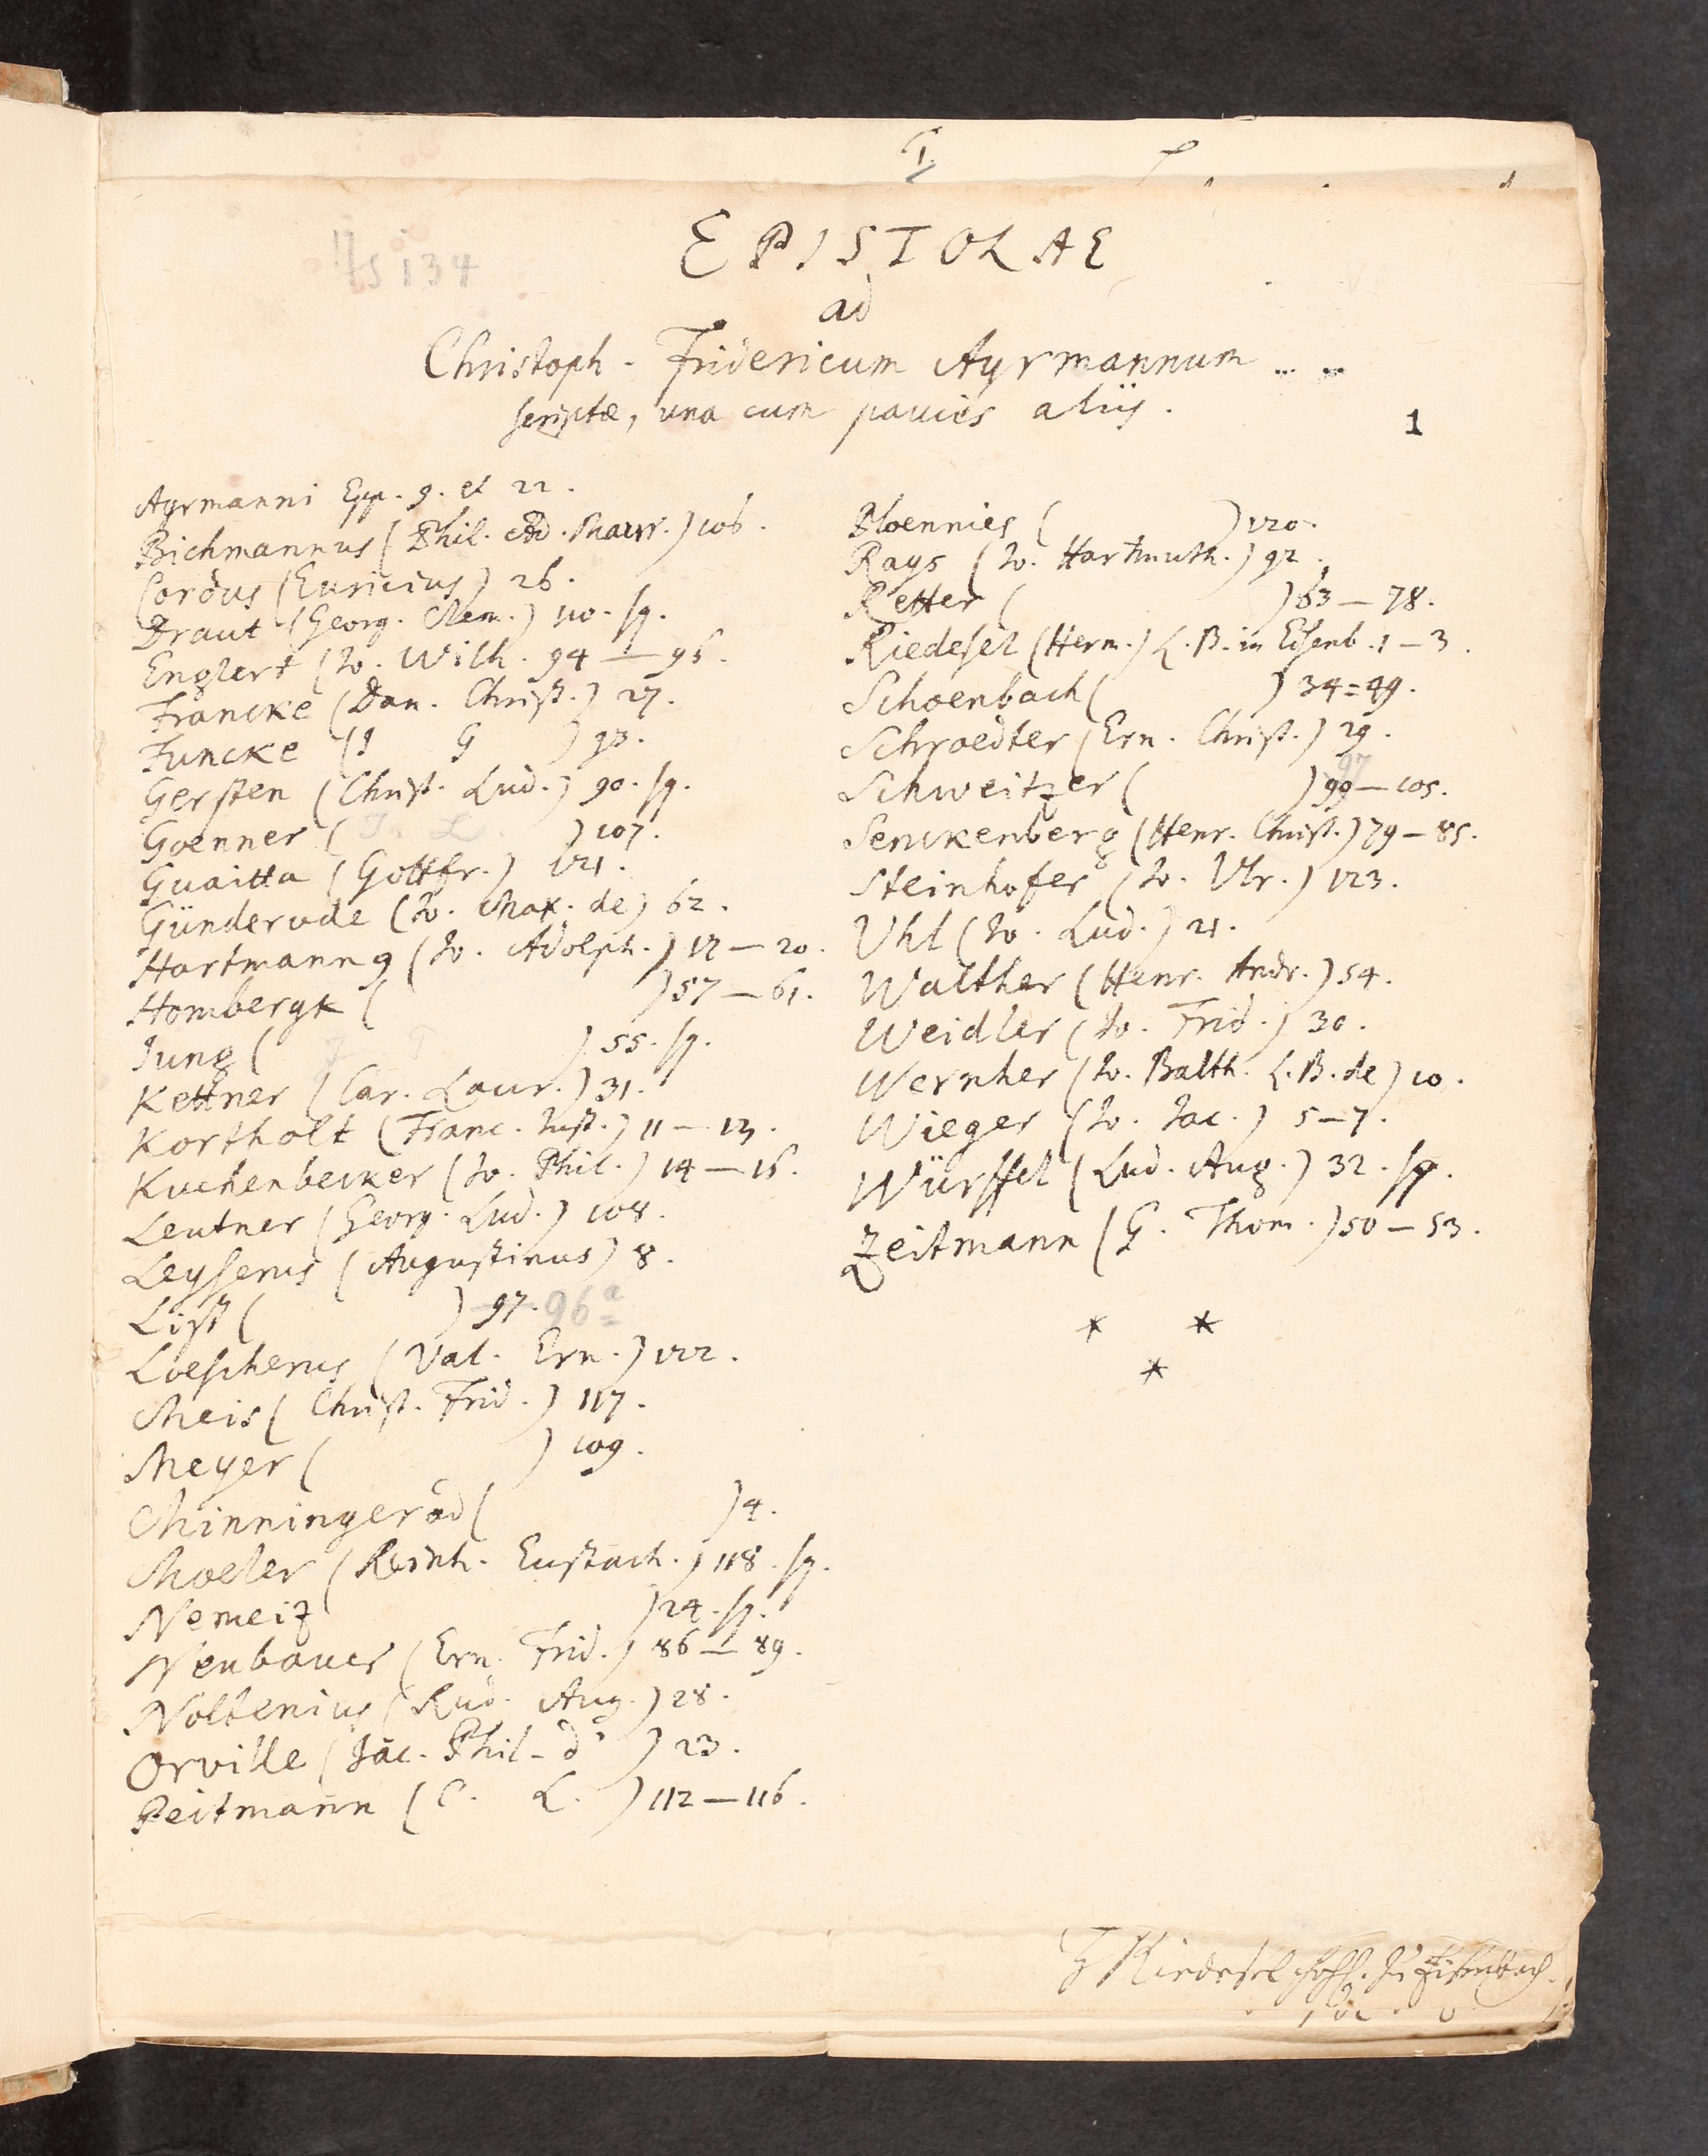 I
Hs 134
EPISTOLAE
ad
Christoph-Fridericum Ayrmannum ... ..
scriptae, una cum paucis aliis.
1
Ayrmanni Epp. 9. et 22.
Bichmannus (Phil. Ad. Maur.) 106.
Cordus (Euricius) 26.
Draut (Georg. Clem.) 110. sq.
Englert (Jo. Wilh. 94 — 96.
Francke (Dan. Christ.) 27.
Funcke (J G ) 93.
Gersten (Christ. Lud.) 90. sq.
Goenner (J. L. ) 107.
Guaitta (Gottfr.) 121.
Günderode (Jo. Max. de) 62.
Hartmann 9 (Jo. Adolph.) 17 — 20.
Hombergk ( ) 57 — 61.
Jung ( ) 55. sq.
Kettner (Car. Laur.) 31.
Kortholt (Franc. Just.) 11 — 13.
Kuchenbecker (Jo. Phil.) 14 — 16.
Leutner (Georg. Lud.) 108.
Leyserus (Augustinus) 8.
List ( ) 97. 96a
Loescherus (Val. Ern.) 122.
Meis (Christ. Frid.) 117.
Meyer ( ) 109.
Minningerod ( ) 4.
Moeler (Reinh. Eustach.) 118. sq.
Nemeiz ) 24. sq.
Neubauer (Ern. Frid.) 86 — 89.
Noltenius (Rud. Aug.) 28.
Orville (Jac. Phil- d' ) 23.
Peitmann (C. L. ) 112 — 116.
Ploennies ( ) 120.
Rays (Jo. Hartmuth.) 92.
Retter ( ) 63 — 78.
Riedesel (Herm.) L. B. in Eisenb. 1 — 3.
Schoenbach ( ) 34 = 49.
Schroedter (Ern. Christ.) 29.
97
Schweitzer ( ) 99 — 105.
Senckenberg (Henr. Christ.) 79 — 85.
Steinhofer (Jo. Ulr.) 123.
Uhl (Jo. Lud.) 21.
Walther (Henr. Andr.) 54.
Weidler (Jo. Frid.) 30.
Wernher (Jo. Balth. L. B. de) 10.
Wieger (Jo. Jac.) 5 — 7.
Würffel (Lud. Aug.) 32. sq.
Zeitmann (G. Thom.) 50 — 53.
* *
*
Riedesel zu Eisenbach.